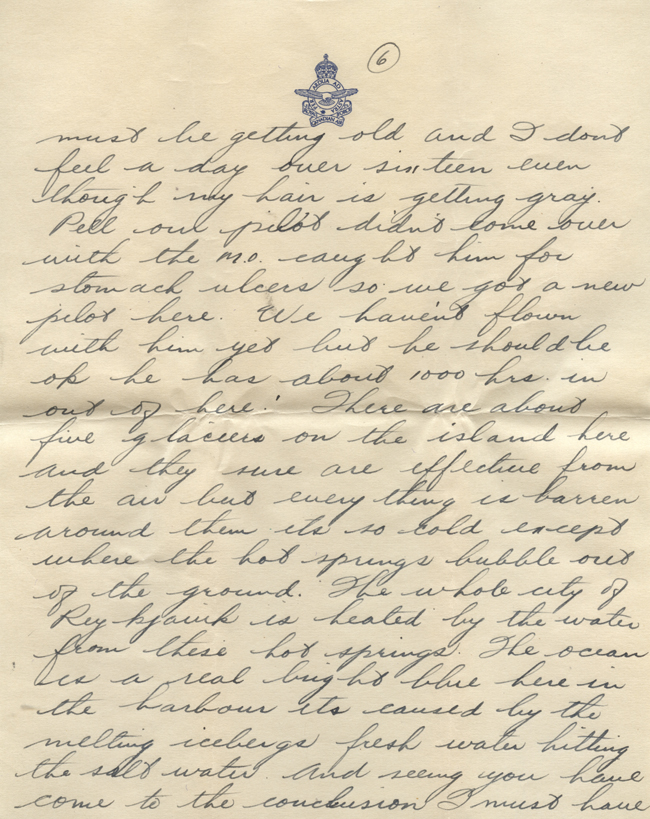 6
must be getting old and I dont
feel a day over sixteen even
though my hair is getting gray.
Pell our pilot didn't come over
with the M.O. caught him for
stomach ulcers so we got a new
pilot here. We haven't flown
with him yet but he should be
ok he has about 1000 hrs. in
out of here! There are about
five glaciers on the island here
and they sure are effective from
the air but every thing is barren
around them its so cold except
where the hot springs bubble out
of the ground. The whole city of
Reykjavik is heated by the water
from these hot springs. The ocean
is a real bright blue here in
the harbour its caused by the
melting icebergs fresh water hitting
the salt water. And seeing you have
come to the conclusion I must have